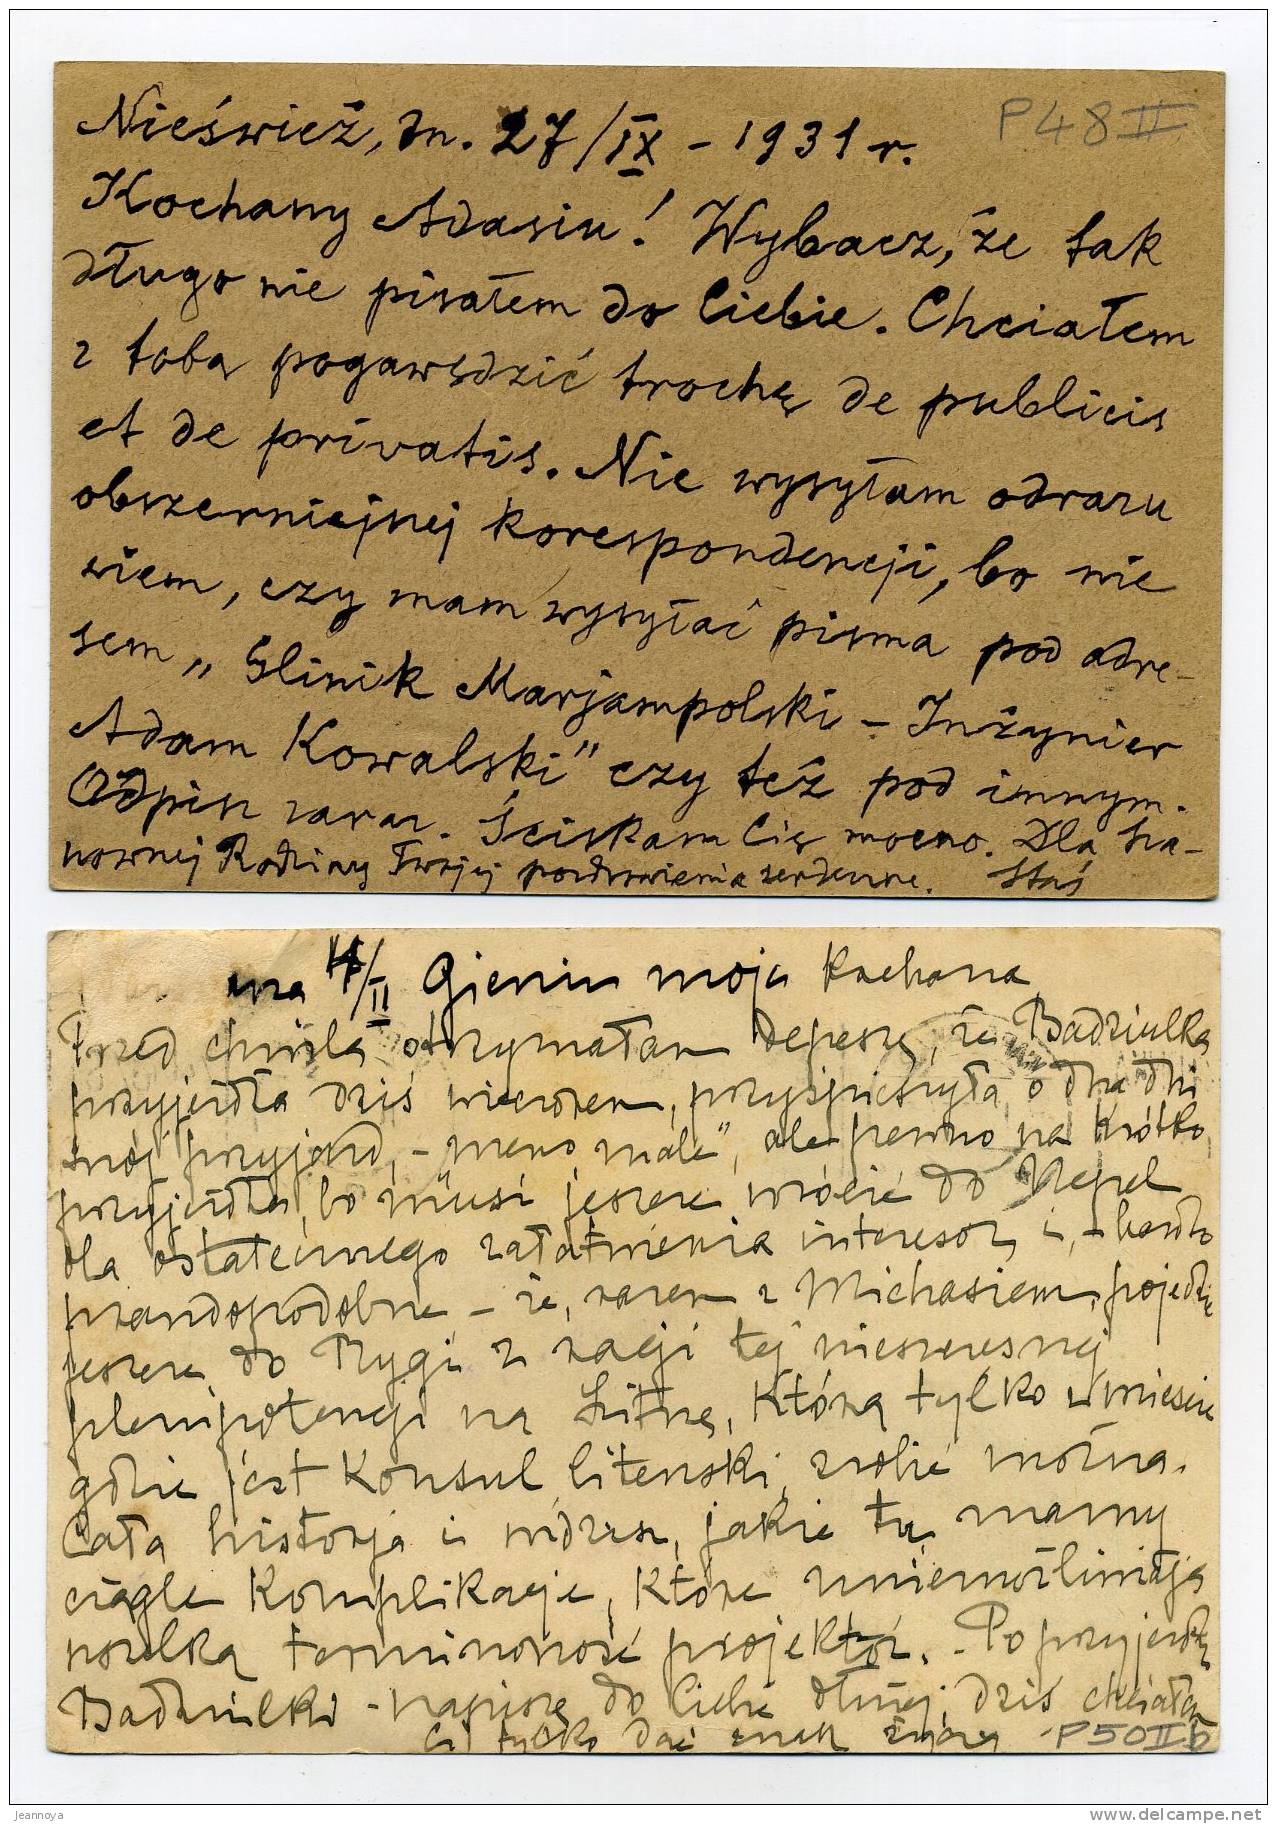 Nieśwież, dn. 27/IX - 1931 r.
P48II
Kochany Adasiu! Wybacz, że tak
długo nie pisałem do Ciebie. Chciałem
z tobą pogawędzić trochę de publicis
et de privatis. Nie wysyłam odrazu
obszerniejnej korespondencji, bo nie
wiem, czy mam wysyłać pisma pod adre-
sem „Glinik Marjampolski - Inżynier
Adam Kowalski" czy też pod innym.
Odpisz zaraz. Ściskam Cię mocno. Dla Sza-
nownej Rodziny Twojej pozdrowienia serdeczne. Staś
II Gieniu moja kochana
Przed chwilą otrzymałam depeszę, że Badziulka
przyjeżdża dziś wieczorem, przyśpieszyła o dwa dni
swój przyjazd, - meno male", ale pewno na krótko
przyjeżdża, bo musi jeszcze wrócić do Nepel
dla ostatecznego załatwienia interesów, i, - bardzo
prawdopodobne - że, razem z Michasiem, pojedzie
jeszcze do Rygi z racji tej nieszczęsnej
plenipotencji na Litwę, którą tylko w mieście
gdzie jest konsul litewski, zrobić można.
Cała historja i widzisz, jakie tu mamy
ciągle komplikacje, które uniemożliwiają
wszelką terminowość projektów. - Po przyjeździe
Badziulki - napiszę do Ciebie dłużej, dziś chciałam
Ci tylko dać znak życia
P50IIb
jeannoya
www.delcampe.net